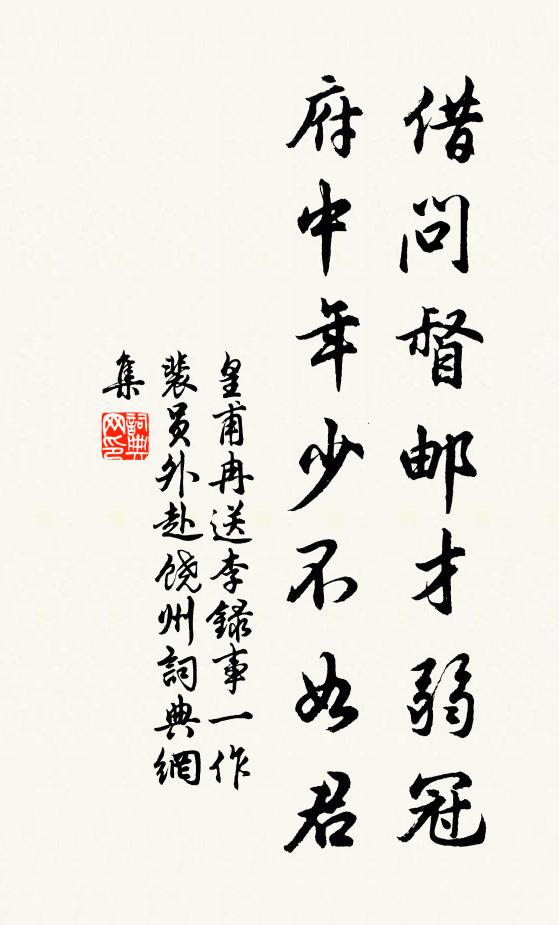 借問督邮才弱冠
府中年少不如君
皇甫冉送李録事一作
裴员外赴饶州詞典網
集
詞典
网印